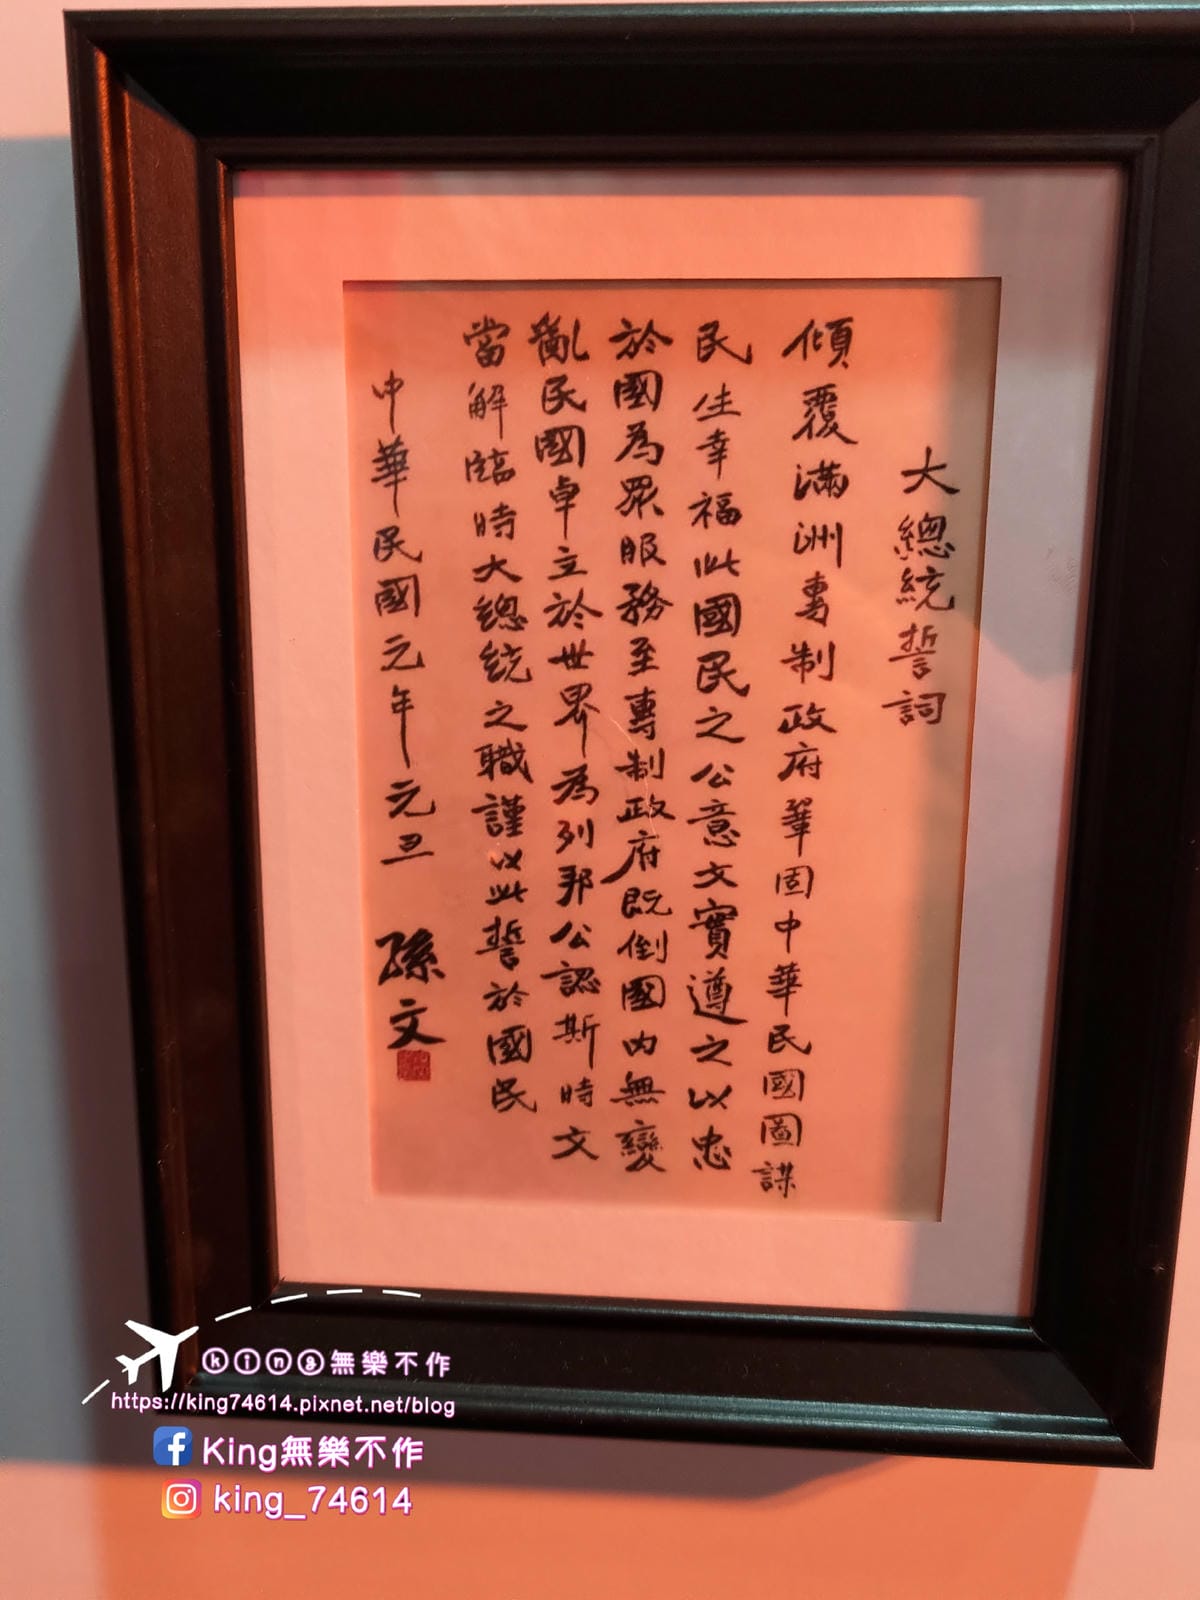 大總統誓詞
傾覆滿洲專制政府鞏固中華民國圖謀
民生幸福此國民之公意文實遵之以忠
於國為眾服務至專制政府既倒國內無變
亂民國卓立於世界為列邦公認斯時文
當解臨時大總統之職謹以此誓於國民
中華民國元年元旦 孫文
ⓚⓘⓝⓖ無樂不作
https://king74614.pixnet.net/blog
King無樂不作
king_74614